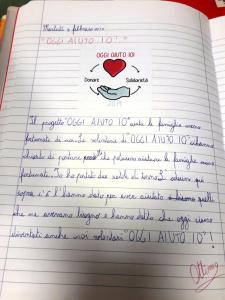 Martedì
"OGGI AIUTO IO!"
OGGI AIUTO IO!
Donare
Solidarietà
2019
Il progetto "OGGI AIUTO IO" aiuta le famiglie meno
fortunate di noi. Le volontarie di "OGGI AIUTO IO" ci hanno
chiesto di portare che potessero aiutare le famiglie meno
fortunate. Io ho portato due scatole di tonno. L'adesivo qui
sopra c'è l'hanno dato per aver aiutato quelli
che ne avevano bisogno e hanno detto che oggi siamo
diventati anche noi volontari "OGGI AIUTO IO"!
Ottimo